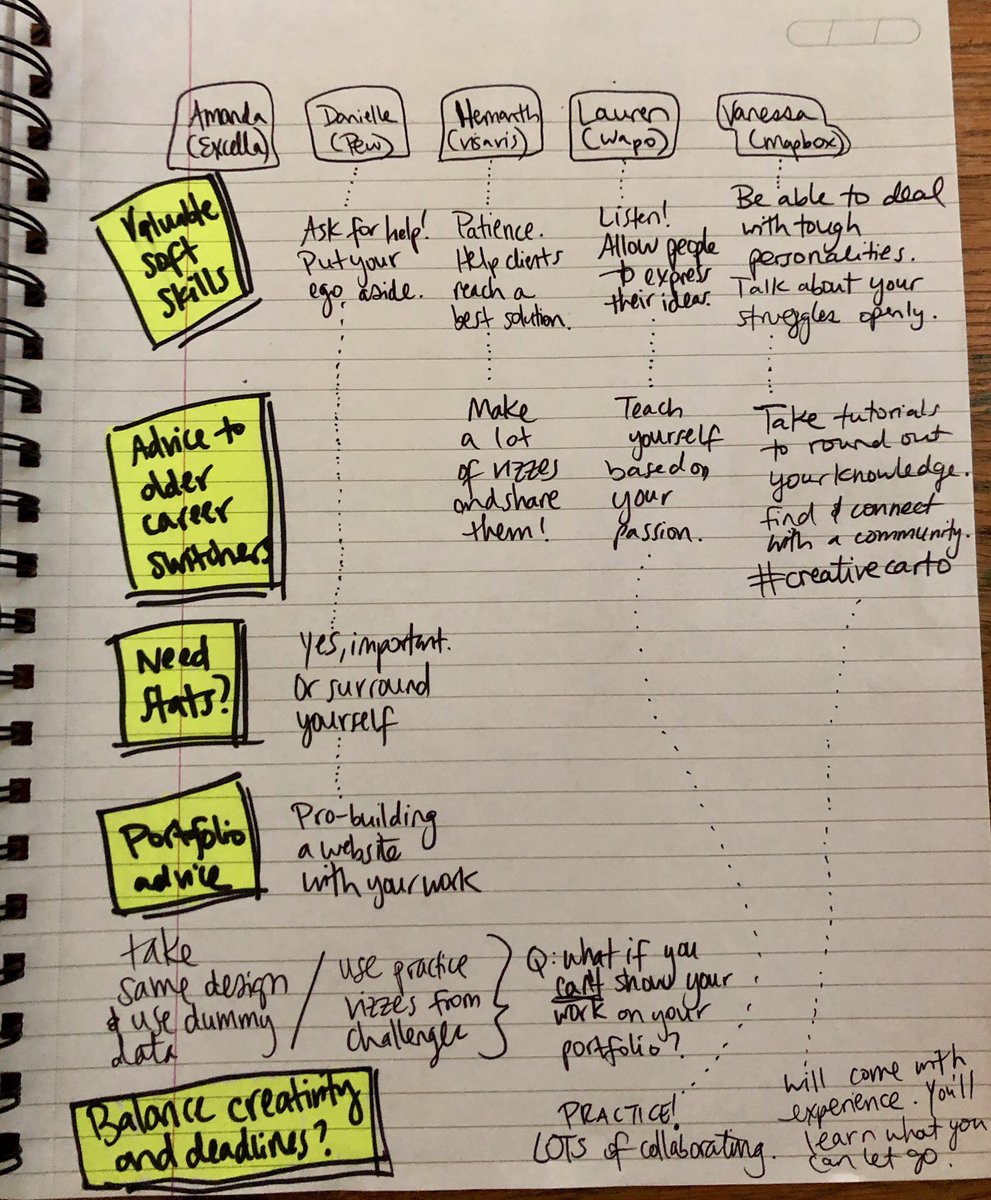 Amanda
(Excella)
Danielle
(Pew)
Hemanth
(visavis)
Lauren
(Wapo)
Vanessa
(Mapbox)
Valuable
soft
skills
Ask for help!
Put your
ego aside.
Patience.
Help clients
reach a
best solution.
Listen!
Allow people
to express
their ideas.
Be able to deal
with tough
personalities.
Talk about your
struggles openly.
Advice to
older
career
switchers
Make
a lot
of vizzes
and share
them!
Teach
yourself
based on
your
passion.
Take tutorials
to round out
your knowledge.
find & connect
with a community.
#creativecarto
Need
stats?
Yes, important.
Or surround
yourself
Portfolio
advice
Pro-building
a website
with your work
take
same design
& use dummy
data
/ use practice
vizzes from
challenges
Q: what if you
can't show your
work on your
portfolio?
Balance creativity
and deadlines?
PRACTICE!
LOTS of collaborating.
will come with
experience. You'll
learn what you
can let go.